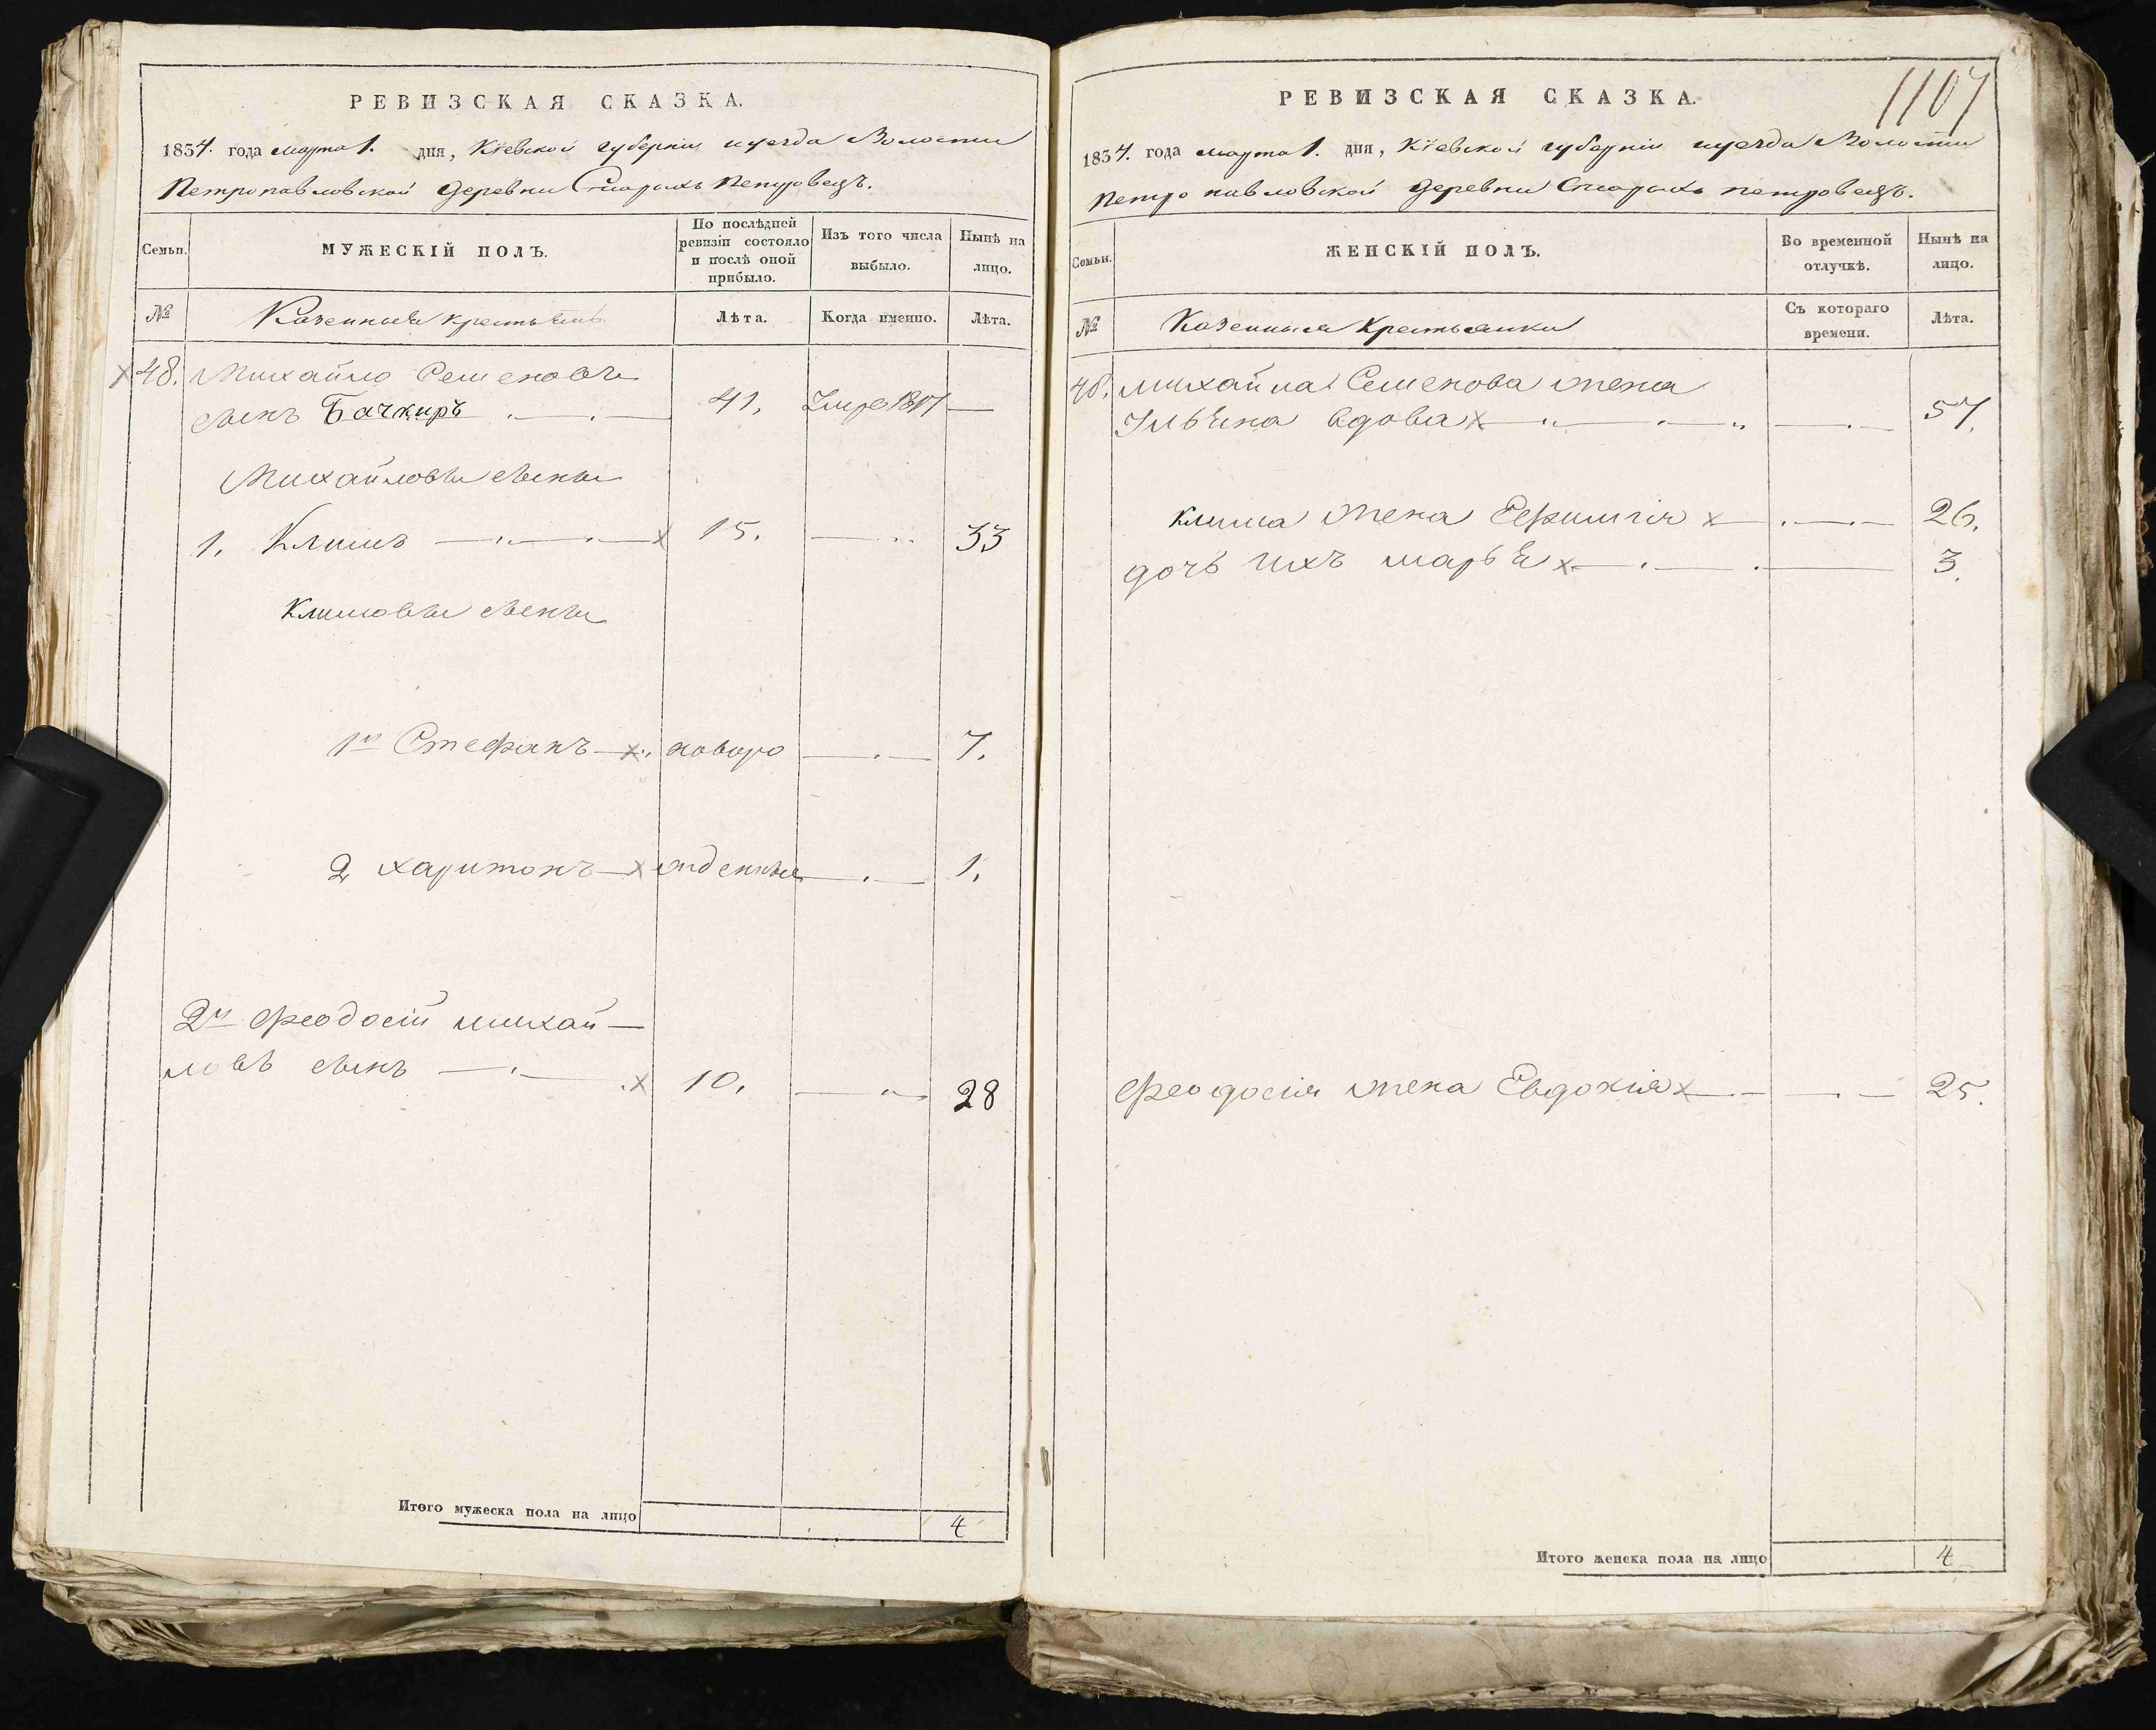 РЕВИЗСКАЯ СКАЗКА.
1834. года марта 1. дня, Кіевской губерніи и уезда Волости
Петропавловской деревни Старыхъ Петровецъ.
Семьи.
МУЖЕСКІЙ ПОЛЪ.
По послѣдней ревизіи состояло и послѣ оной прибыло.
Изъ того числа выбыло.
Нынѣ на лицо.
№
Казенные крестьяне
Лѣта.
Когда именно.
Лѣта.
48. Михайло Семеновъ
сынъ Бачкиръ 41. Умре 1817
Михайловы сыны
1. Климъ 15. 33
Климовы сыны
1й Стефанъ новоро 7.
2 Харитонъ жденные 1.
2й Феодосій Михай
ловъ сынъ 10. 28
Итого мужеска пола на лицо 4
1107
РЕВИЗСКАЯ СКАЗКА.
1834. года марта 1. дня, Кіевской губерніи и уезда Волости
Петропавловской деревни Старыхъ Петровецъ.
Семьи.
ЖЕНСКІЙ ПОЛЪ.
Во временной отлучкѣ.
Нынѣ на лицо.
№
Казенныя Крестьянки
Съ котораго времени.
Лѣта.
48. Михайла Семенова жена
Ульяна вдова 57.
Клима жена Ефимгія 26.
дочь ихъ Марья 3.
Феодосія жена Евдокія 25.
Итого женска пола на лицо 4